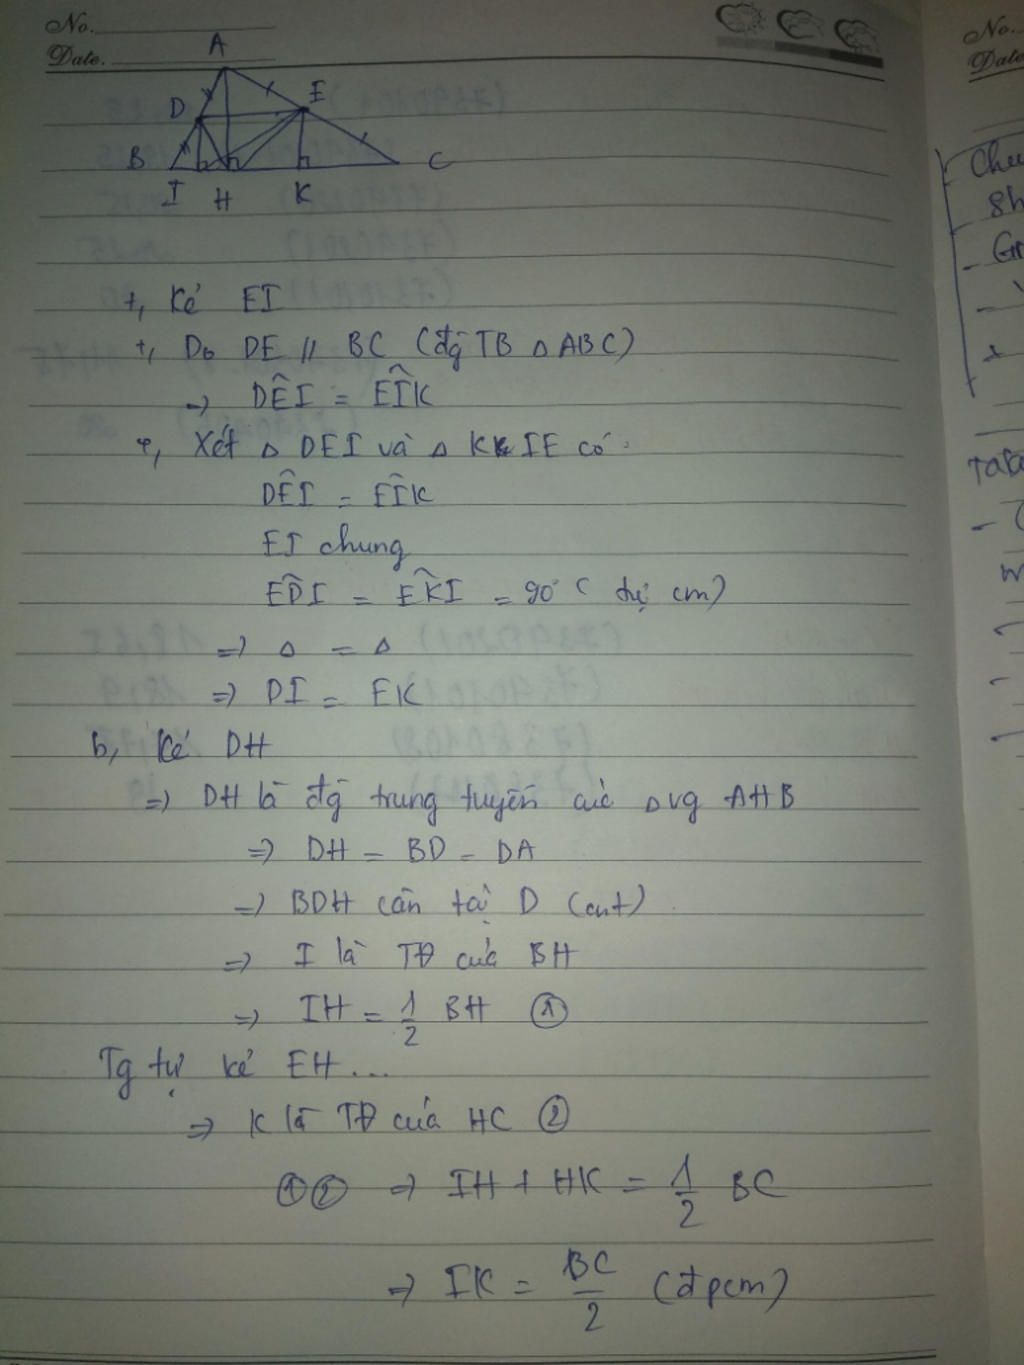 No.
Date.
A
D
E
B
C
I
H
K
+, Kẻ EI
+, Do DE // BC (đg TB △ ABC)
=> DÊI = EÎK
+, Xét △ DEI và △ KIE có:
DÊI = EÎK
EI chung
ED̂I = EK̂I = 90° ( tự cm)
=> △ = △
=> DI = EK
b, Kẻ DH
=> DH là đg trung tuyến của △vg AHB
=> DH = BD = DA
=> BDH cân tại D (cmt)
=> I là TĐ của BH
=> IH = 1/2 BH ①
Tg tự kẻ EH...
=> K là TĐ của HC ②
①② => IH + HK = 1/2 BC
=> IK = BC/2 (đpcm)
No.
Date